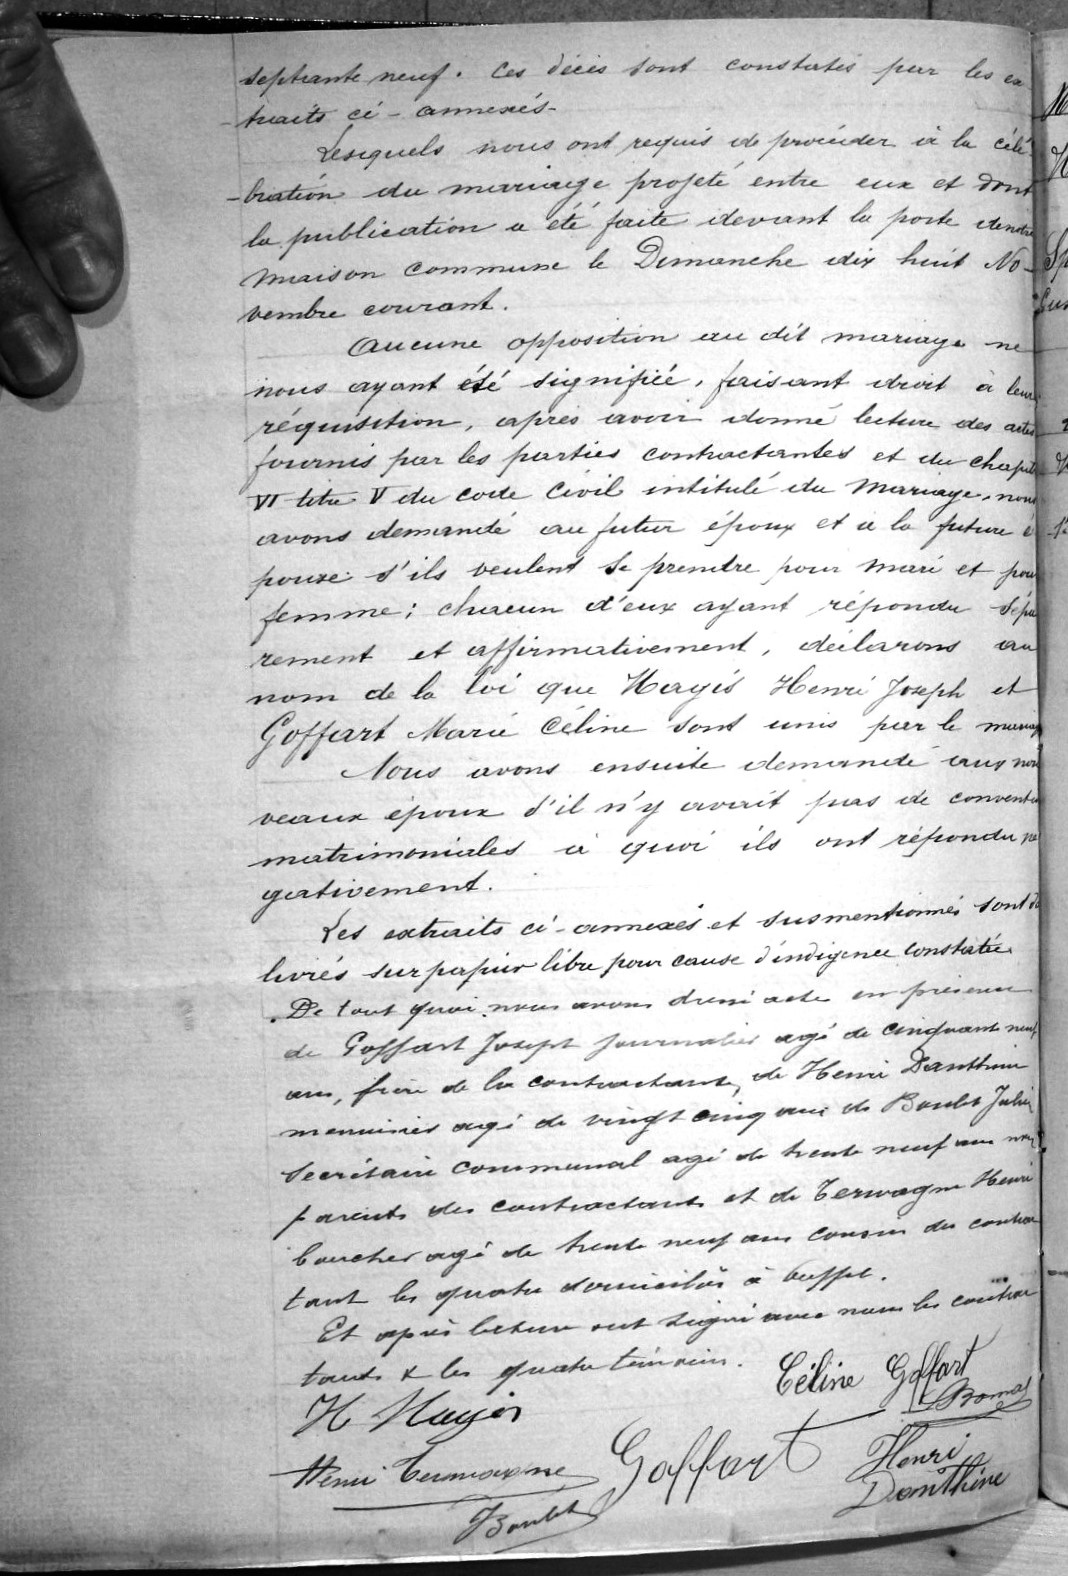 septante neuf. Ces décès sont constatés par les ex
traits ci-annexés-
Lesquels nous ont requis de procéder à la célé
-bration du mariage projeté entre eux et dont
la publication a été faite devant la porte de notre
maison commune le Dimanche dix huit No-
vembre courant.
Aucune opposition au dit mariage ne
nous ayant été signifiée, faisant droit à leur
réquisition, après avoir donné lecture des actes
fournis par les parties contractantes et du chapit
VI titre V du code Civil intitulé du Mariage, nous
avons demandé au futur époux et à la future é
pouse s'ils veulent se prendre pour mari et pour
femme; chacun d'eux ayant répondu sépa
rement et affirmativement, déclarons au
nom de la loi que Hayis Henri Joseph et
Goffart Marie Céline sont unis par le mariag
Nous avons ensuite demandé aux nou
veaux époux s'il n'y avait pas de convent
matrimoniales à quoi ils ont répondu né
gativement.
Les extraits ci-annexés et susmentionnés sont dé
livrés sur papier libre pour cause d'indigence constatée
De tout quoi nous avons dressé acte en présence
de Goffart Joseph journalier agé de cinquant neuf
ans, frère de la contractante, de Henri Danthine
menuisier agé de vingt cinq ans de Boulet Julien
Secrétaire communal agé de trente neuf ans non
parents des contractants et de Terwagne Henri
boucher agé de trente neuf ans cousin du contrac
tant les quatre domiciliés à
Et après lecture ont signé avec nous les contrac
tants & les quatre témoins.
Céline Goffart
H Hayis
Henri Terwagne
Goffart
Henri
Danthine
Boulet